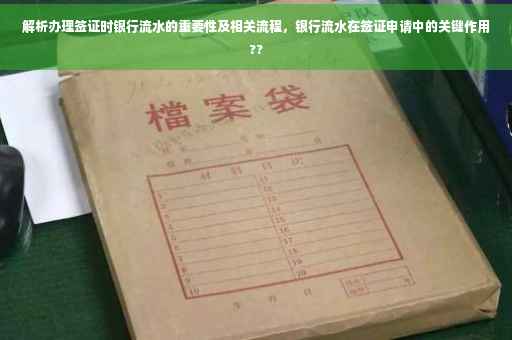 解析办理签证时银行流水的重要性及相关流程，银行流水在签证申请中的关键作用
??
檔案袋
材料目次
1 11
2 12
3 13
4 14
5 15
6 16
7 17
8 18
9 19
10 20
年 月 日